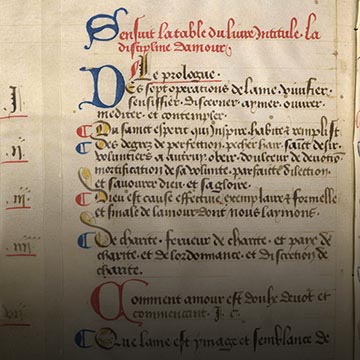 Sensuit la table du livre Intitule. la
discipline damour
Le prologue.
Des sept operations de lame. viuifier.
sensifier. discerner. aymer. ouurer.
mediter et contempler.
i
Du sainct esperit qui inspire. habite et remplist
ii
Des degrez de perfection. pechez hair. saict desir.
voluntiers a autruy obeir. doulceur de deuotion
mortification de sa volunte. parfaicte dilection.
et sauourer dieu et sa gloire.
iii
Dieu est cause effectiue exemplaire et formelle
et finale de lamour dont nous laymons.
iiii
De charite. ferueur de charite. et paix de
charite. et de lordonnance. et discretion de
charite.
Comment amour est doulx deuot et
Que lame est ymage et semblance de